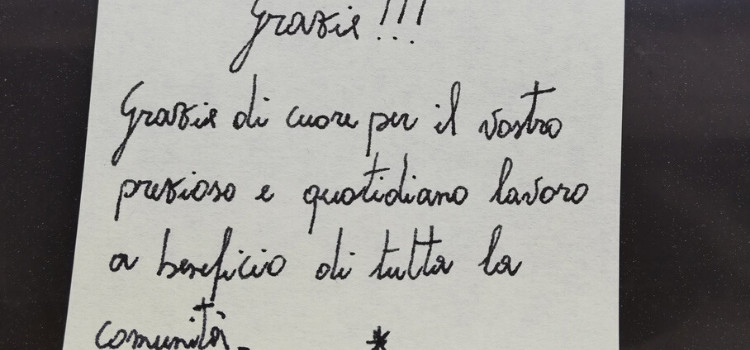 Grazie!!!
Grazie di cuore per il vostro
prezioso e quotidiano lavoro
a beneficio di tutta la
comunità.
*